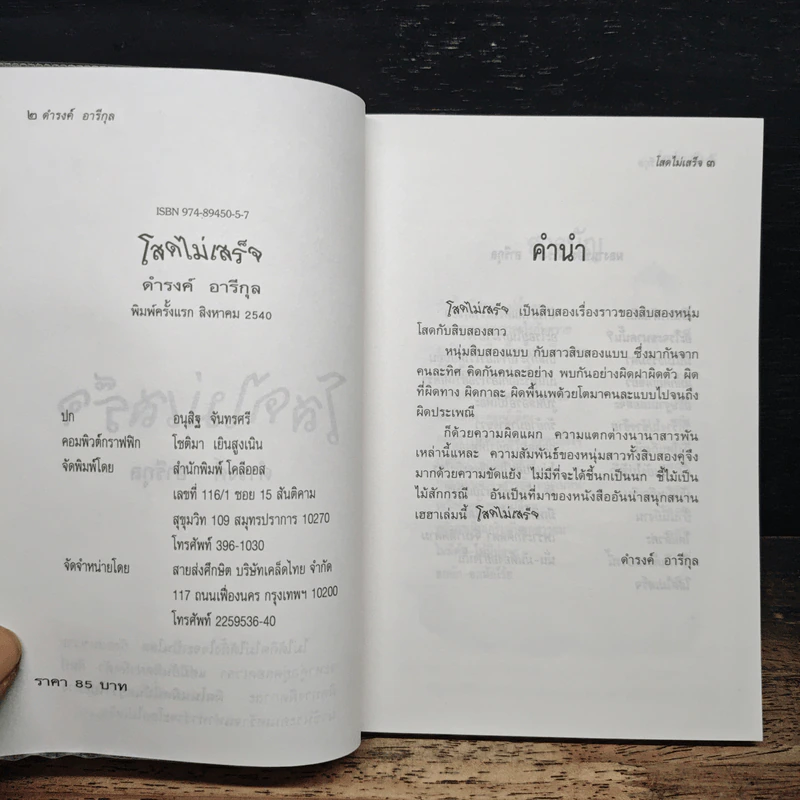 ๒ ดำรงค์ อารีกุล
ISBN 974-89450-5-7
โสดไม่เสร็จ
ดำรงค์ อารีกุล
พิมพ์ครั้งแรก สิงหาคม 2540
ปก อนุสิฐ จันทรศรี
คอมพิวต์กราฟฟิก โชติมา เยินสูงเนิน
จัดพิมพ์โดย สำนักพิมพ์ โคลีออส
เลขที่ 116/1 ซอย 15 สันติคาม
สุขุมวิท 109 สมุทรปราการ 10270
โทรศัพท์ 396-1030
จัดจำหน่ายโดย สายส่งศึกษิต บริษัทเคล็ดไทย จำกัด
117 ถนนเฟื่องนคร กรุงเทพฯ 10200
โทรศัพท์ 2259536-40
ราคา 85 บาท
โสดไม่เสร็จ ๓
คำนำ
โสดไม่เสร็จ เป็นสิบสองเรื่องราวของสิบสองหนุ่ม
โสดกับสิบสองสาว
หนุ่มสิบสองแบบ กับสาวสิบสองแบบ ซึ่งมากันจาก
คนละทิศ คิดกันคนละอย่าง พบกันอย่างผิดฝาผิดตัว ผิด
ที่ผิดทาง ผิดกาละ ผิดพื้นเพด้วยโตมาคนละแบบไปจนถึง
ผิดประเพณี
ก็ด้วยความผิดแผก ความแตกต่างนานาสารพัน
เหล่านี้แหละ ความสัมพันธ์ของหนุ่มสาวทั้งสิบสองคู่จึง
มากด้วยความขัดแย้ง ไม่มีที่จะได้ชี้นกเป็นนก ชี้ไม้เป็น
ไม้สักกรณี อันเป็นที่มาของหนังสืออันน่าสนุกสนาน
เฮฮาเล่มนี้ โสดไม่เสร็จ
ดำรงค์ อารีกุล